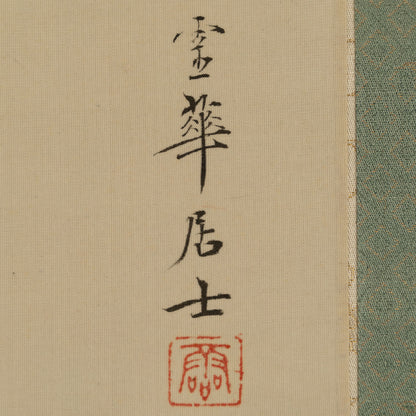 霊華居士